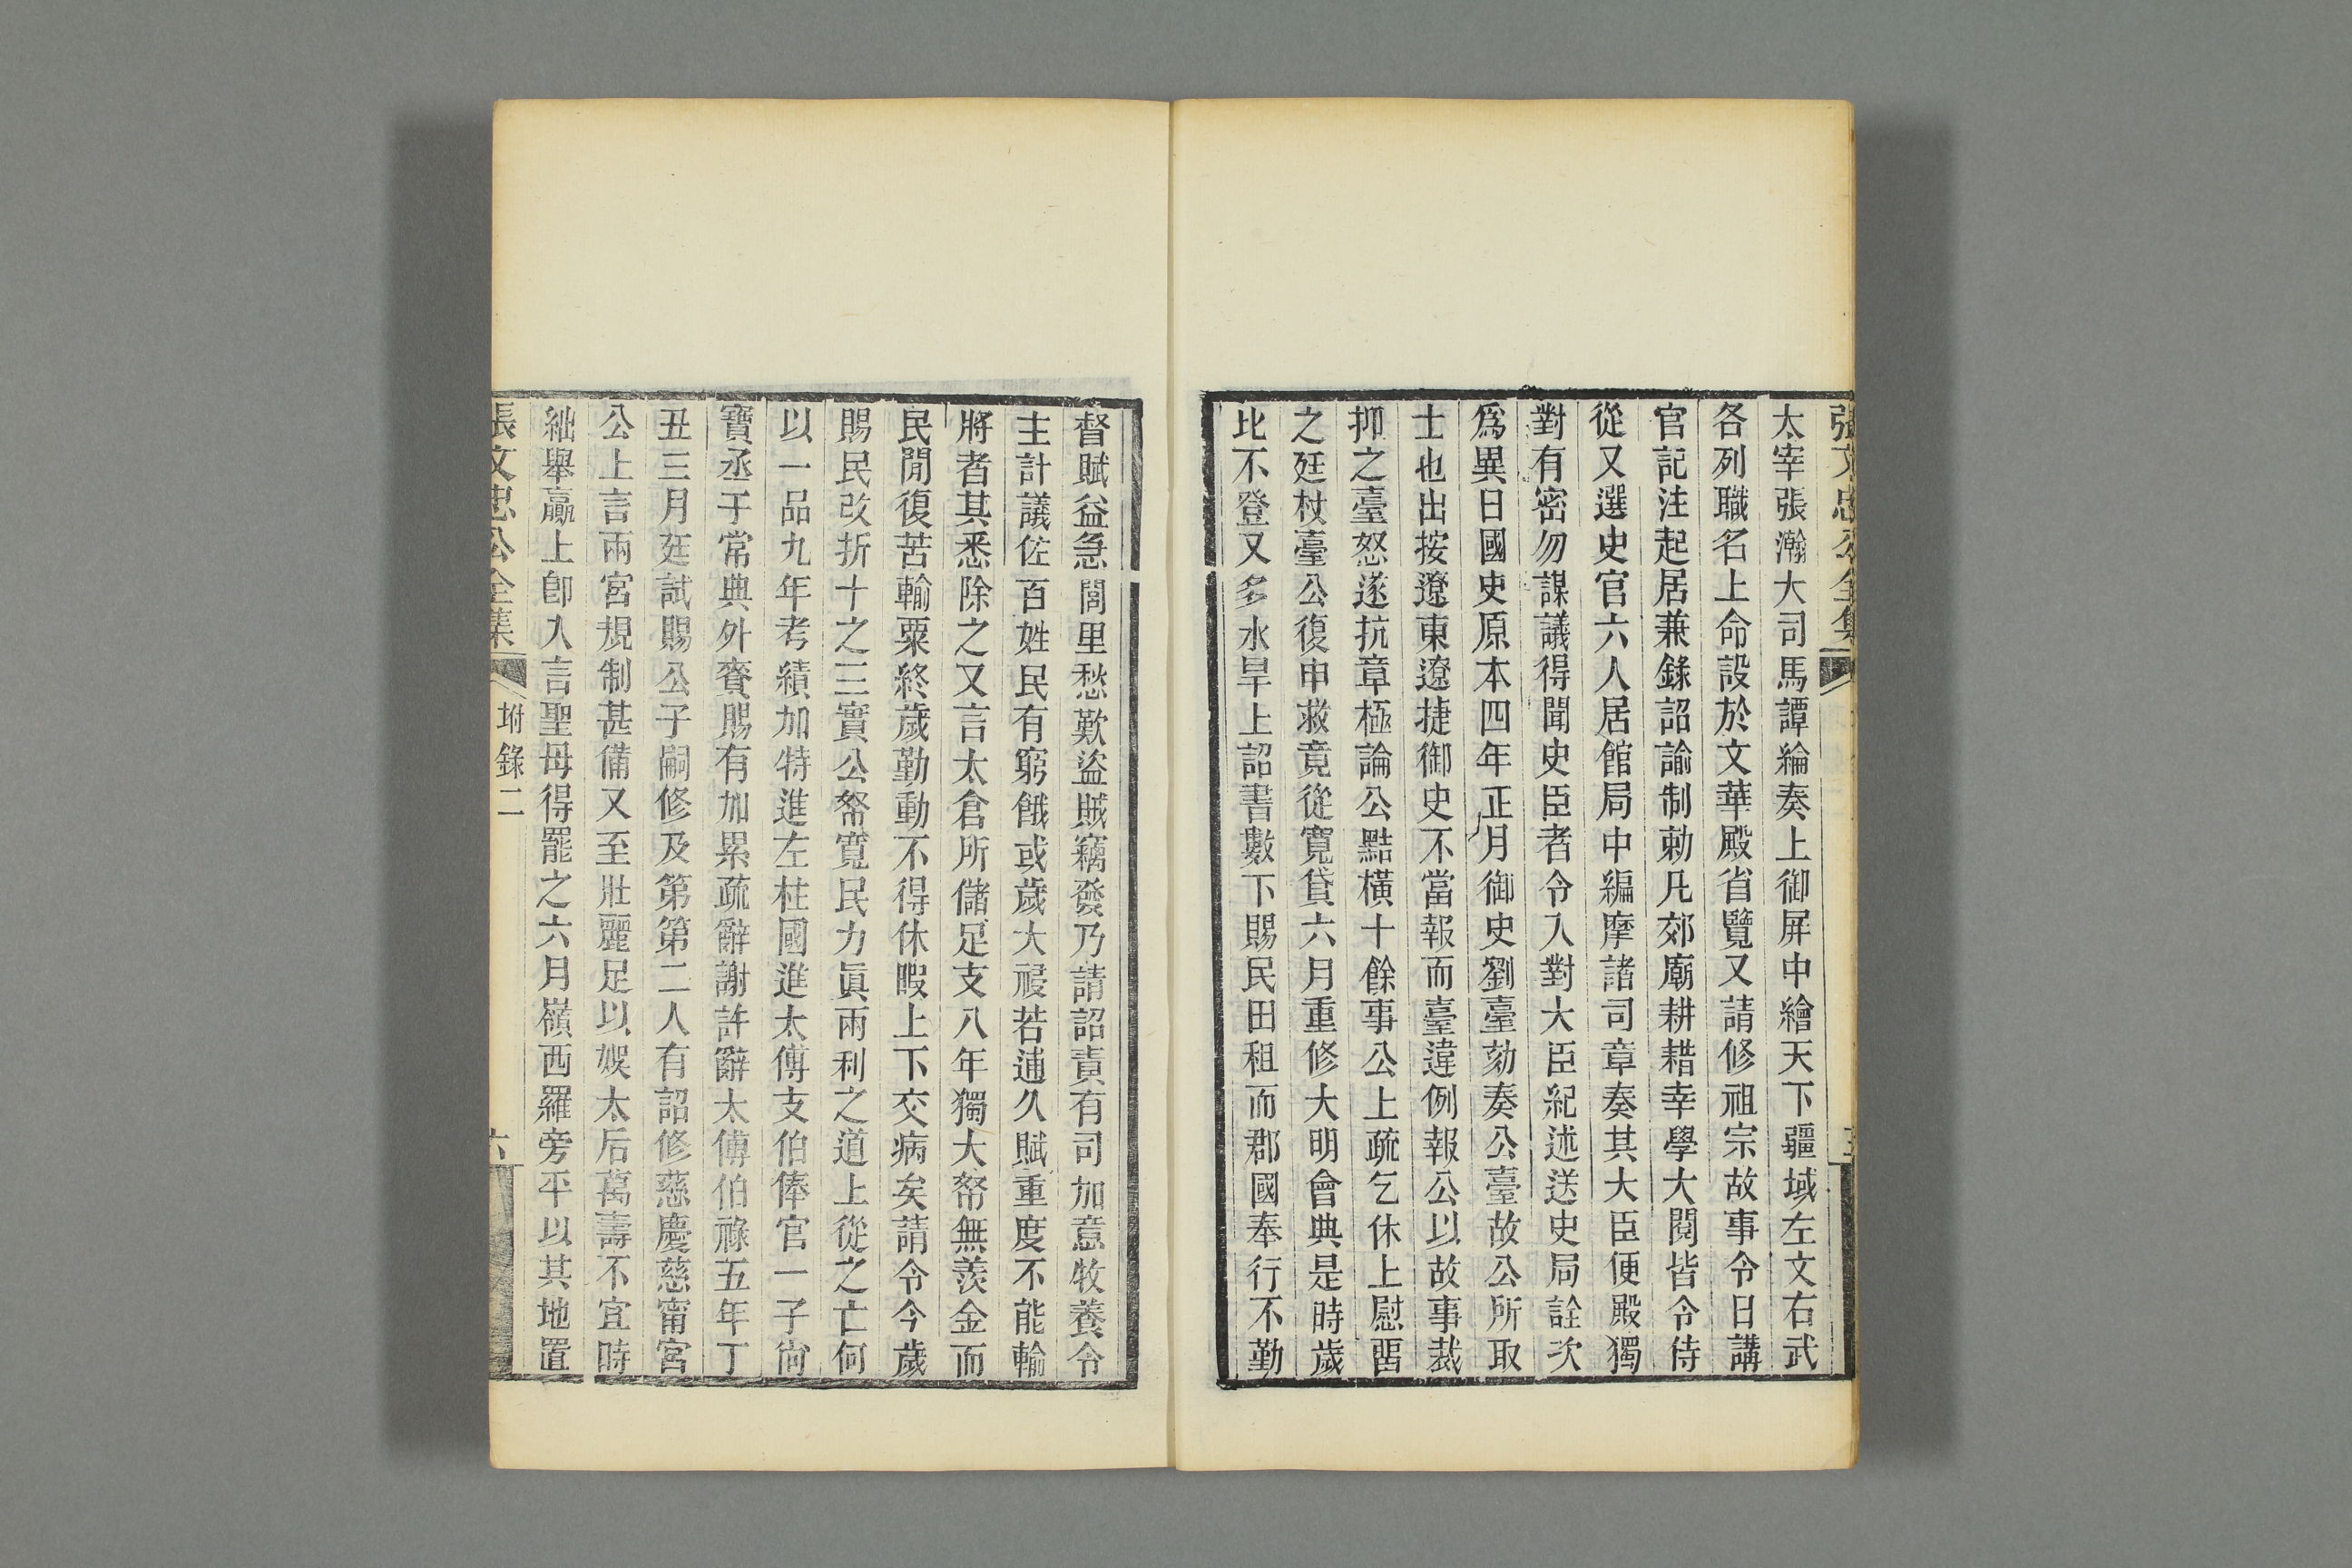 張文忠公全集
太宰張瀚大司馬譚綸奏上御屏中繪天下疆域左文右武
各列職名上命設於文華殿省覽又請修祖宗故事令日講
官記注起居兼錄詔諭制勅凡郊廟耕耤幸學大閱皆令侍
從又選史官六人居館局中編摩諸司章奏其大臣便殿獨
對有密勿謀議得聞史臣者令入對大臣紀述送史局詮次
爲異日國史原本四年正月御史劉臺劾奏公臺故公所取
士也出按遼東遼捷御史不當報而臺違例報公以故事裁
抑之臺怒遂抗章極論公黠橫十餘事公上疏乞休上慰畱
之廷杖臺公復申救竟從寬貸六月重修大明會典是時歲
比不登又多水旱上詔書數下賜民田租而郡國奉行不勤
督賦益急閭里愁歎盜賊竊發乃請詔責有司加意牧養令
主計議佐百姓民有窮餓或歲大祲若逋久賦重度不能輸
將者其悉除之又言太倉所儲足支八年獨大帑無羨金而
民閒復苦輸粟終歲勤動不得休暇上下交病矣請令今歲
賜民改折十之三實公帑寬民力眞兩利之道上從之亡何
以一品九年考績加特進左柱國進太傅支伯俸官一子尙
寶丞于常典外賚賜有加累疏辭謝許辭太傅伯祿五年丁
丑三月廷試賜公子嗣修及第第二人有詔修慈慶慈甯宮
公上言兩宮規制甚備又至壯麗足以娛太后萬壽不宜時
絀舉贏上卽入言聖母得罷之六月嶺西羅旁平以其地置
張文忠公全集
坿錄二
六